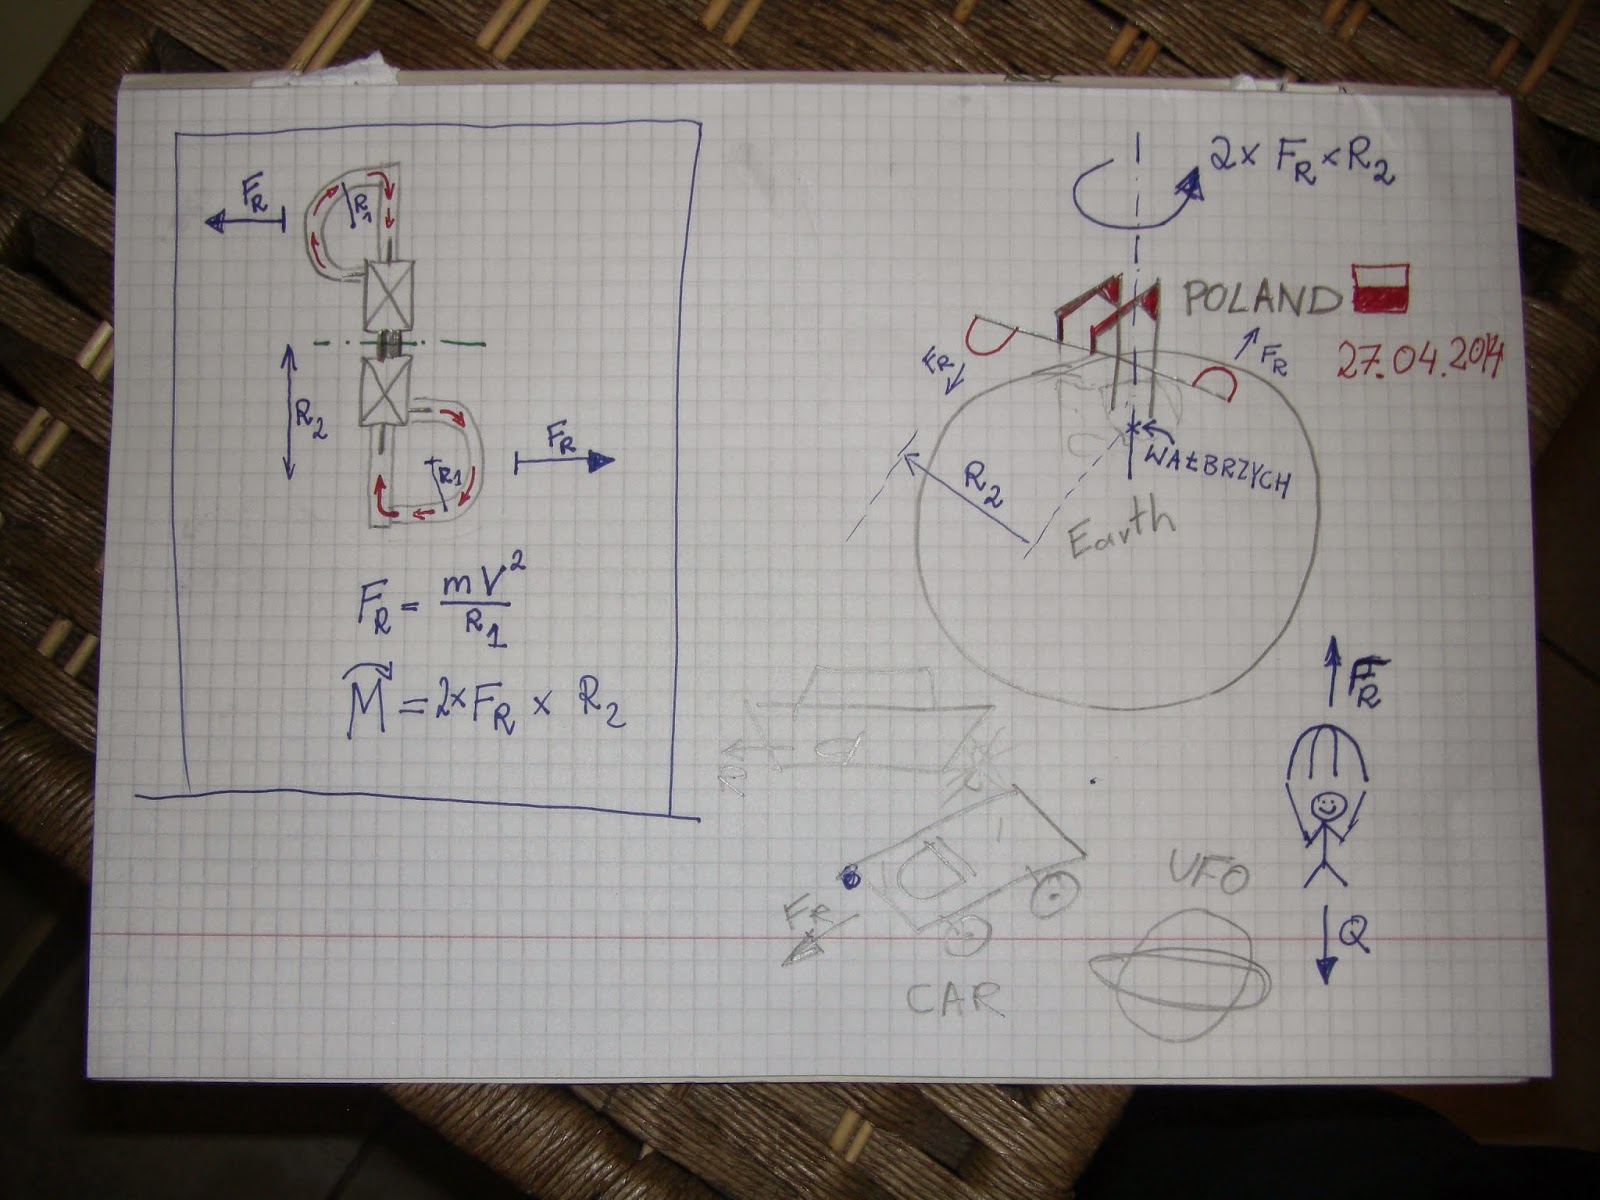 F_R
R_1
R_2
F_R
R_1
F_R = mV²/R_1
M = 2×F_R × R_2
2× F_R × R_2
POLAND
27.04.2014
F_R
F_R
WAŁBRZYCH
R_2
Earth
F_R
Q
F_R
CAR
UFO